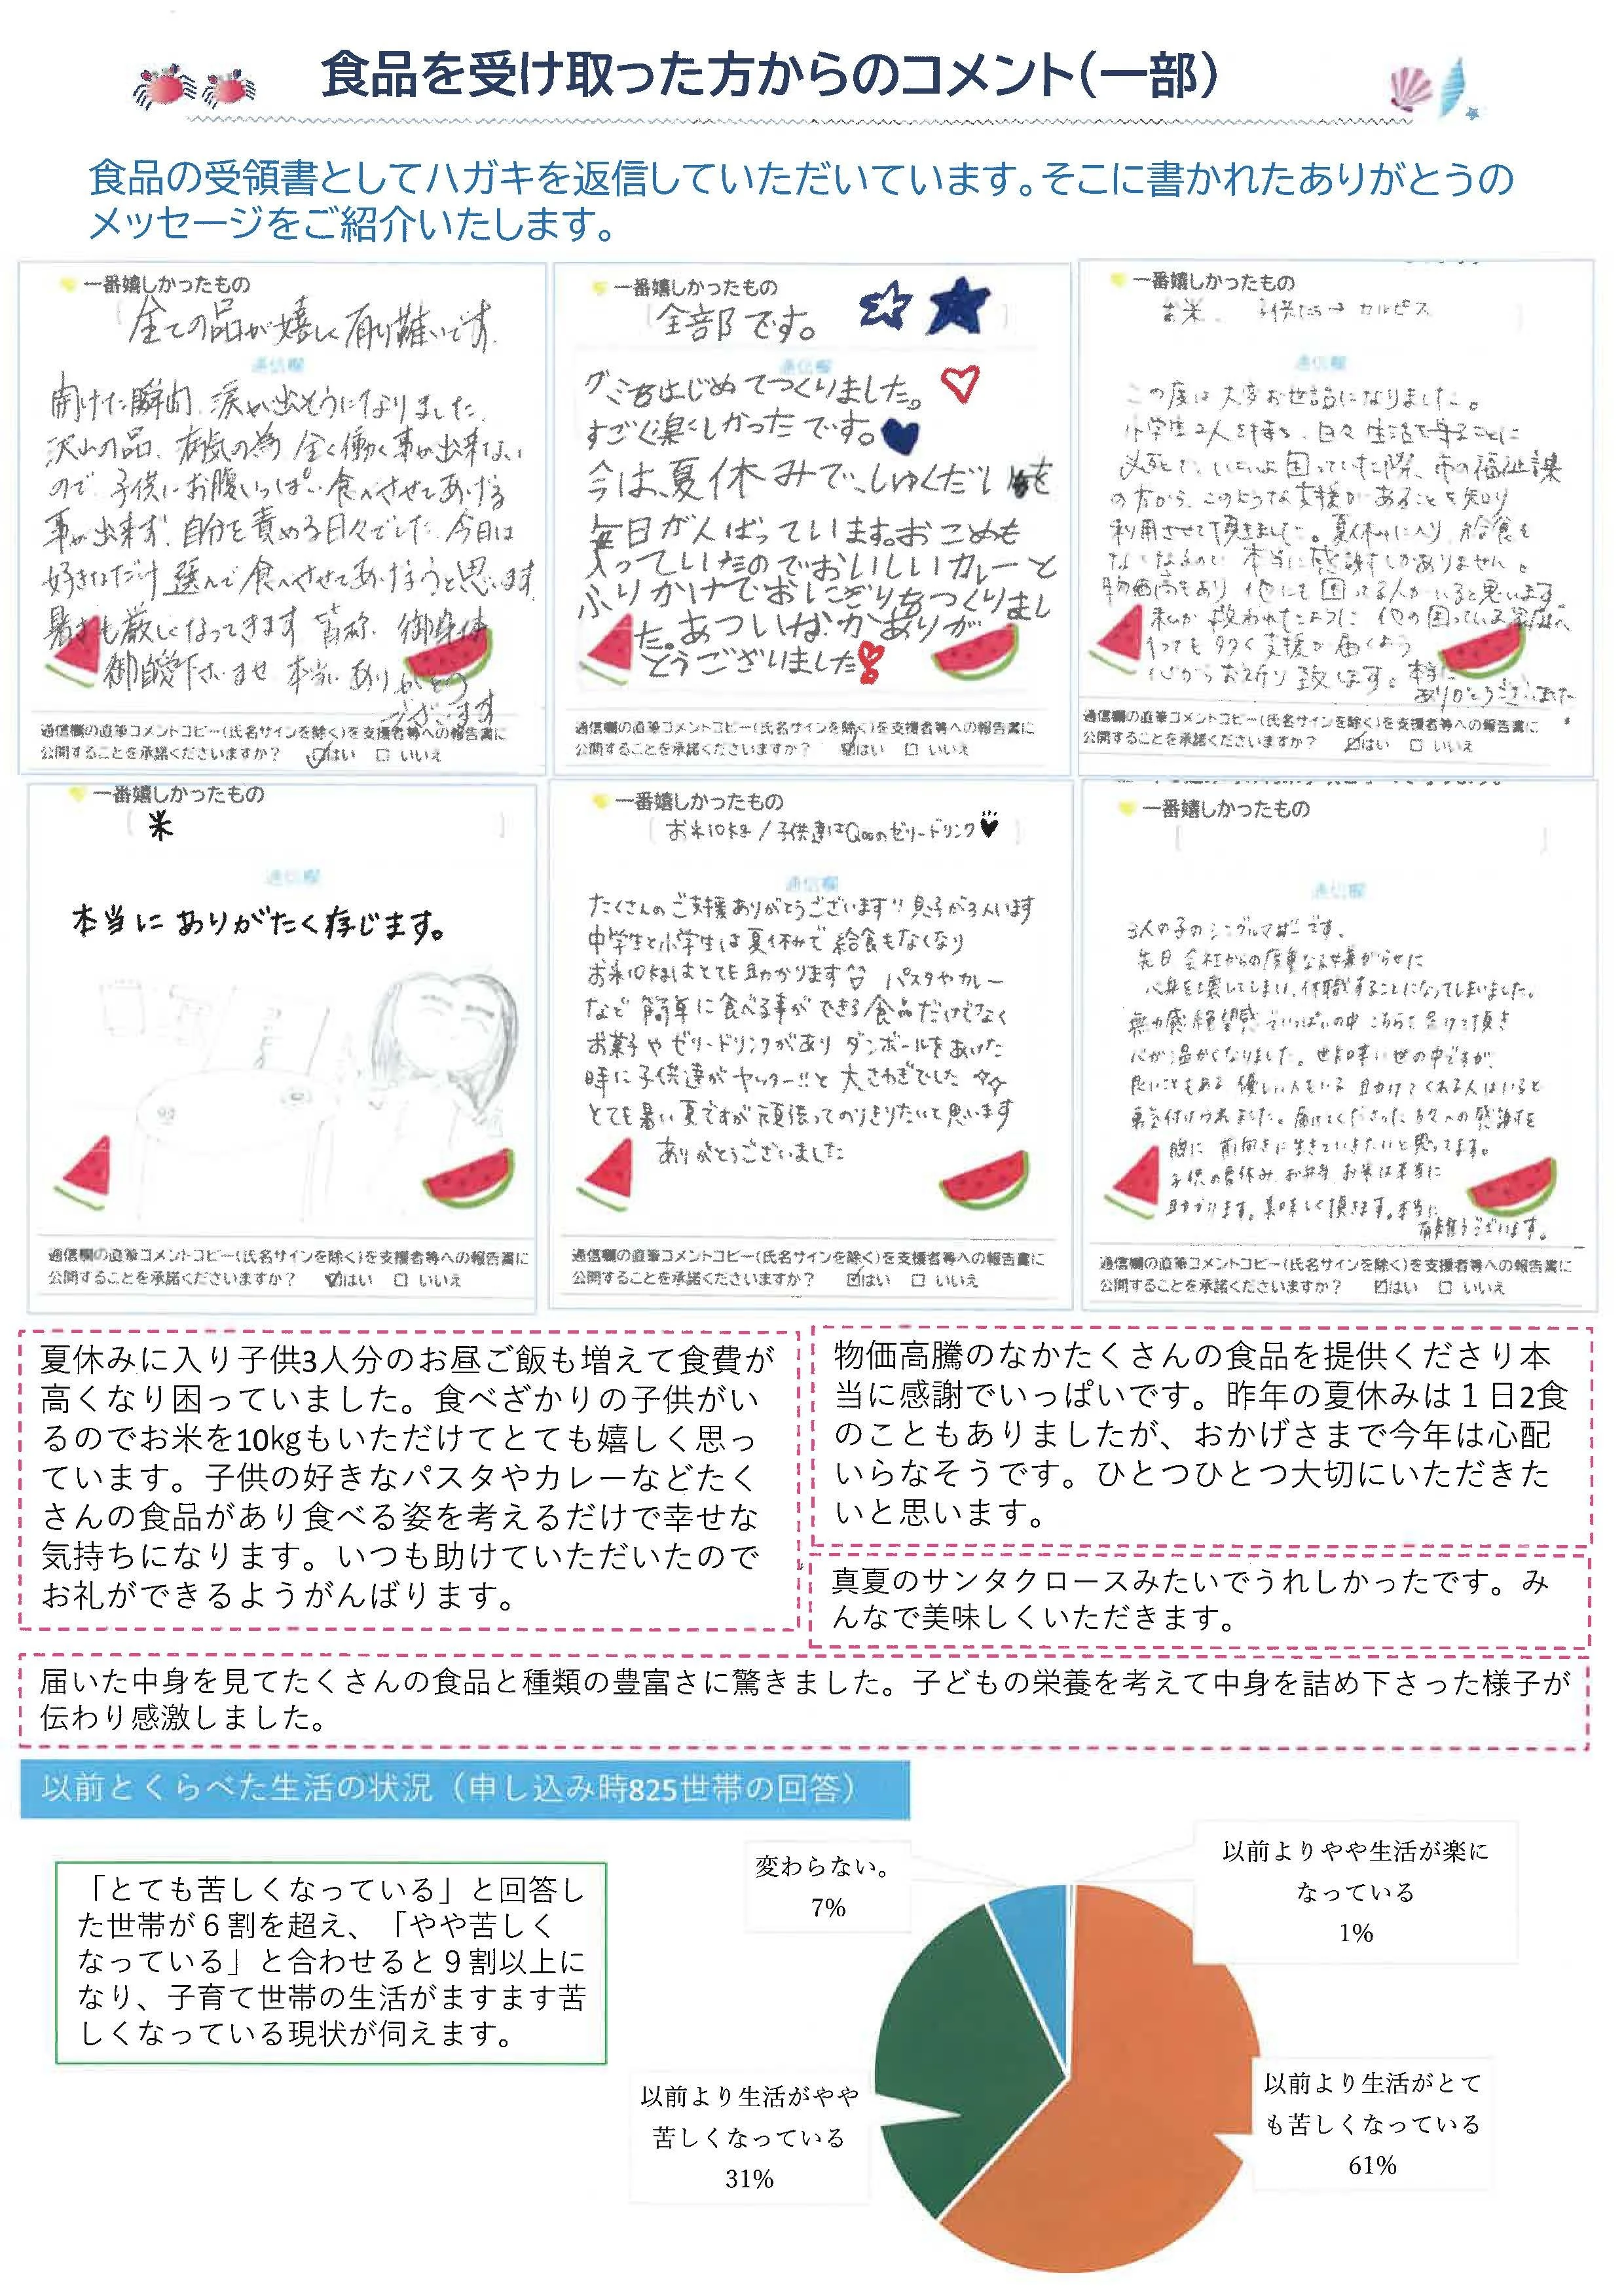 食品を受け取った方からのコメント(一部)
食品の受領書としてハガキを返信していただいています。そこに書かれたありがとうの
メッセージをご紹介いたします。
一番嬉しかったもの
全ての品が嬉しく有り難いです。
通信欄
開けた瞬間、涙が出そうになりました。
沢山の品、病気の為 全く働く事が出来ない
ので、子供にお腹いっぱい食べさせてあげる
事が出来ず、自分を責める日々でした。今日は
好きなだけ選んで食べさせてあげようと思います
暑さも厳しくなってきます 皆称、御身体
御自愛下さいませ 本当にありがとう
ございます
通信欄の直筆コメントコピー(氏名サインを除く)を支援者等への報告書に
公開することを承諾くださいますか? ☑はい □ いいえ
一番嬉しかったもの
全部です。
通信欄
グミをはじめてつくりました。
すごく楽しかったです。
今は、夏休みで、しゅくだいを
毎日がんばっています。おこめも
入っていたのでおいしいカレーと
ふりかけでおにぎりをつくりまし
た。あついなかありが
とうございました
通信欄の直筆コメントコピー(氏名サインを除く)を支援者等への報告書に
公開することを承諾くださいますか? ☑はい □ いいえ
一番嬉しかったもの
お米、子供たち→カルピス
通信欄
この度は大変お世話になりました。
小学生2人を持ち、日々生活を守ることに
必死で、いよいよ困っていた際、市の福祉課
の方から、このような支援があることを知り
利用させて頂きました。夏休みに入り、給食も
なくなるので、本当に感謝しかありません。
物価高もあり、他にも困ってる人がいると思います。
私が救われたように、他の困っている家庭へ
1つでも多く支援が届くよう
心からお祈り致します。本当に
ありがとうございました。
通信欄の直筆コメントコピー(氏名サインを除く)を支援者等への報告書に
公開することを承諾くださいますか? ☑はい □ いいえ
一番嬉しかったもの
米
通信欄
本当に ありがたく存じます。
通信欄の直筆コメントコピー(氏名サインを除く)を支援者等への報告書に
公開することを承諾くださいますか? ☑はい □ いいえ
一番嬉しかったもの
お米10kg/子供達はQooのゼリードリンク
通信欄
たくさんのご支援ありがとうございます!! 息子が3人います
中学生と小学生は夏休みで給食もなくなり
お米10kgはとても助かります パスタやカレー
など簡単に食べる事ができる食品だけでなく
お菓子やゼリードリンクがあり ダンボールをあけた
時に子供達がヤッター!!と大さわぎでした
とても暑い夏ですが頑張ってのりきりたいと思います
ありがとうございました
通信欄の直筆コメントコピー(氏名サインを除く)を支援者等への報告書に
公開することを承諾くださいますか? ☑はい □ いいえ
一番嬉しかったもの
通信欄
3人の子のシングルマザーです。
先日 会社からの度重なる嫌がらせに
心身を壊してしまい、休職することになってしまいました。
無力感 絶望感でいっぱいの中 こちらを届けて頂き
心が温かくなりました。世知辛い世の中ですが、
良いこともある 優しい人もいる 助けてくれる人はいると
勇気付けられました。届けてくださった方々への感謝を
胸に 前向きに生きていきたいと思ってます。
子供の夏休み、お弁当、お米は本当に
助かります。美味しく頂きます。本当に
有難うございます。
通信欄の直筆コメントコピー(氏名サインを除く)を支援者等への報告書に
公開することを承諾くださいますか? ☑はい □ いいえ
夏休みに入り子供3人分のお昼ご飯も増えて食費が
高くなり困っていました。食べざかりの子供がい
るのでお米を10㎏もいただけてとても嬉しく思っ
ています。子供の好きなパスタやカレーなどたく
さんの食品があり食べる姿を考えるだけで幸せな
気持ちになります。いつも助けていただいたので
お礼ができるようがんばります。
物価高騰のなかたくさんの食品を提供くださり本
当に感謝でいっぱいです。昨年の夏休みは１日2食
のこともありましたが、おかげさまで今年は心配
いらなそうです。ひとつひとつ大切にいただきた
いと思います。
真夏のサンタクロースみたいでうれしかったです。み
んなで美味しくいただきます。
届いた中身を見てたくさんの食品と種類の豊富さに驚きました。子どもの栄養を考えて中身を詰め下さった様子が
伝わり感激しました。
以前とくらべた生活の状況（申し込み時825世帯の回答）
「とても苦しくなっている」と回答し
た世帯が６割を超え、「やや苦しく
なっている」と合わせると９割以上に
なり、子育て世帯の生活がますます苦
しくなっている現状が伺えます。
変わらない。
7%
以前よりやや生活が楽に
なっている
1%
以前より生活がやや
苦しくなっている
31%
以前より生活がとて
も苦しくなっている
61%